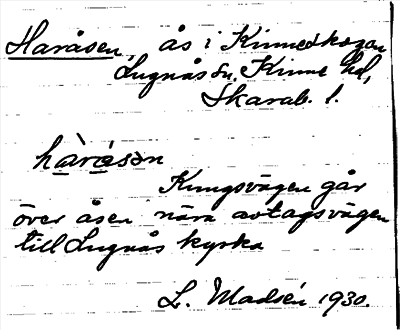 Haråsen, ås i Kinneskogen
Lugnås sn, Kinne hd,
Skarab. l.
hàråsən
Kungsvägen går
över åsen nära avtagsvägen
till Lugnås kyrka
L. Madsén 1930.